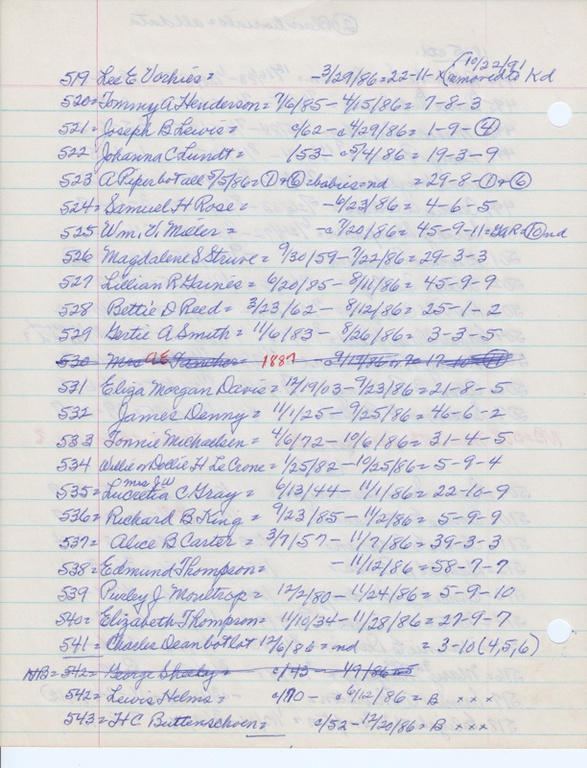 519 Lee E Vorhies = -3/29/86 = 22-11-x (10/22/91 removed to Kd
520 = Tommy A Henderson = 7/6/85 - 4/15/86 = 7-8-3
521 = Joseph B Lewis = c/62 - c4/29/86 = 1-9-(4)
522 Johanna C Lundt = 1/53 - c5/4/86 = 19-3-9
523 A Piper bot all 5/5/86 = (1) + (6) = babies = nd = 29-8-(1)+(6)
524 = Samuel H Rose = -6/23/86 = 4-6-5
525 Wm. V. Mater = -c7/20/86 = 45-9-11 = (10) nd
526 Magdalene S Struve = 9/30/59 - 7/22/86 = 29-3-3
527 Lillian R Gaines = 6/20/85 - 8/11/86 = 45-9-9
528 Bettie D Reed = 3/23/62 - 8/12/86 = 25-1-2
529 Gertie A Smith = 11/6/83 - 8/26/86 = 3-3-5
530 Mrs A E = 1887 - c9/17/86 17
531 Eliza Morgan Davis = 12/19/03 - 9/23/86 = 21-8-5
532 James Denny = 11/1/25 - 9/25/86 = 46-6-2
533 Tonnie Michaelsen = 4/6/72 - 10/6/86 = 31-4-5
534 Willie n Dollie H Le Crone = 1/25/82 - 10/25/86 = 5-9-4
535 = Lucretia mrs J W C Gray = 6/13/44 - 11/1/86 = 22-10-9
536 = Richard B King = 9/23/85 - 11/2/86 = 5-9-9
537 = Alice B Carter = 3/7/57 - 11/7/86 = 39-3-3
538 = Edmund Thompson = - 11/12/86 = 58-7-7
539 Purley J Moultrop = 12/2/80 - 11/24/86 = 5-9-10
540 = Elizabeth Thompson = 11/10/34 - 11/28/86 = 27-9-7
541 = Charles Dean bot lot 12/6/86 = nd = 3-10 (4,5,6)
NB = 542 = George c/43 - 4/9/86
542 = Lewis Helms = c/70 - 6/12/86 = B x x x
543 = H C Buttenschoen = c/52 - 12/20/86 = B x x x